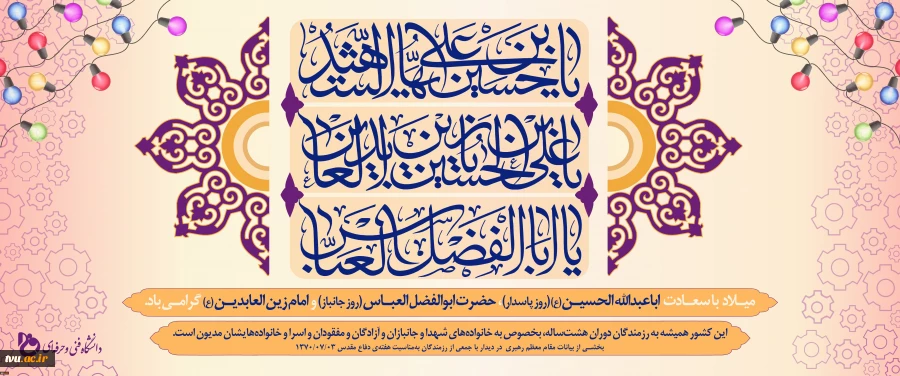 یا حسین بن علی ایها الشهید
یا علی بن الحسین یا زین العابدین
یا اباالفضل العباس
میلاد باسعادت اباعبدالله الحسین(ع)(روز پاسدار) حضرت ابوالفضل العباس (روز جانباز) و امام زین العابدین(ع) گرامی باد.
این کشور همیشه به رزمندگان دوران هشت‌ساله، بخصوص به خانواده‌های شهدا و جانبازان و آزادگان و مفقودان و اسرا و خانواده‌هایشان مدیون است.
بخشی از بیانات مقام معظم رهبری در دیدار با جمعی از رزمندگان به‌مناسبت هفته‌ی دفاع مقدس ۱۳۷۰/۰۷/۰۳
دانشگاه فنی و حرفه‌ای
tvu.ac.ir